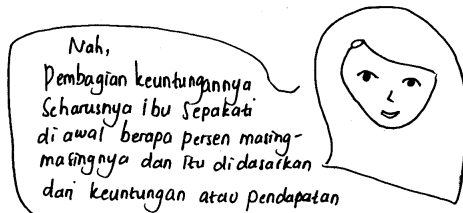 Nah,
Pembagian keuntungannya
Seharusnya ibu sepakati
di awal berapa persen masing-
masingnya dan itu didasarkan
dari keuntungan atau pendapatan